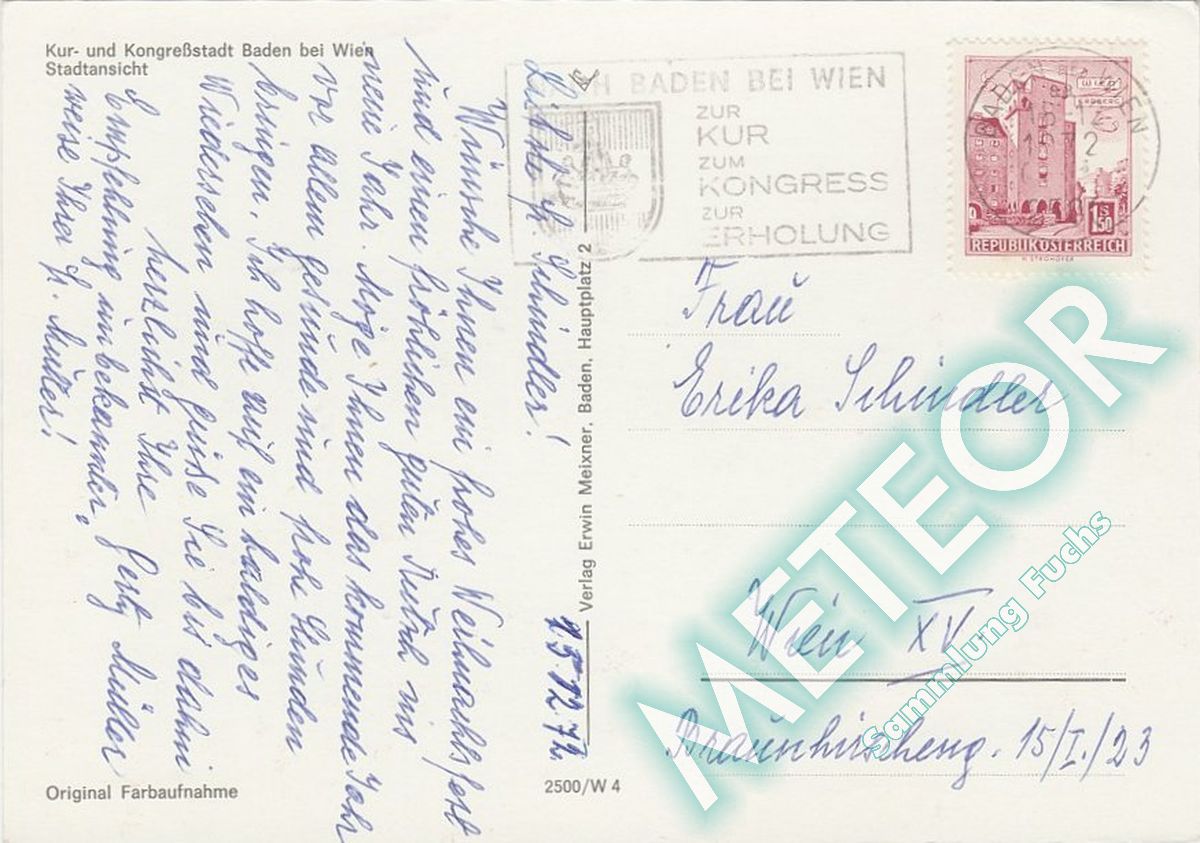 Kur- und Kongreßstadt Baden bei Wien
Stadtansicht
NACH BADEN BEI WIEN
ZUR
KUR
ZUM
KONGRESS
ZUR
ERHOLUNG
WIEN
ERDBERG
S
1.50
REPUBLIK ÖSTERREICH
H. STROHOFER
Liebe Fr. Schindler!
Wünsche Ihnen ein frohes Weihnachtsfest
und einen fröhlichen guten Rutsch ins
neue Jahr. Möge Ihnen das kommende Jahr
vor allem gesunde und frohe Stunden
bringen. Ich hoffe auf ein baldiges
Wiedersehen und grüße Sie bis dahin
herzlichst Ihre
Gerty Müller
Empfehlung unbekannter-
weise Ihrer Fr. Mutter!
15.12.72
Verlag Erwin Meixner, Baden, Hauptplatz 2
Frau
Erika Schindler
Wien XV.
Braunhirscheng. 15/I./23
Original Farbaufnahme
2500/W 4
METEOR
Sammlung Fuchs